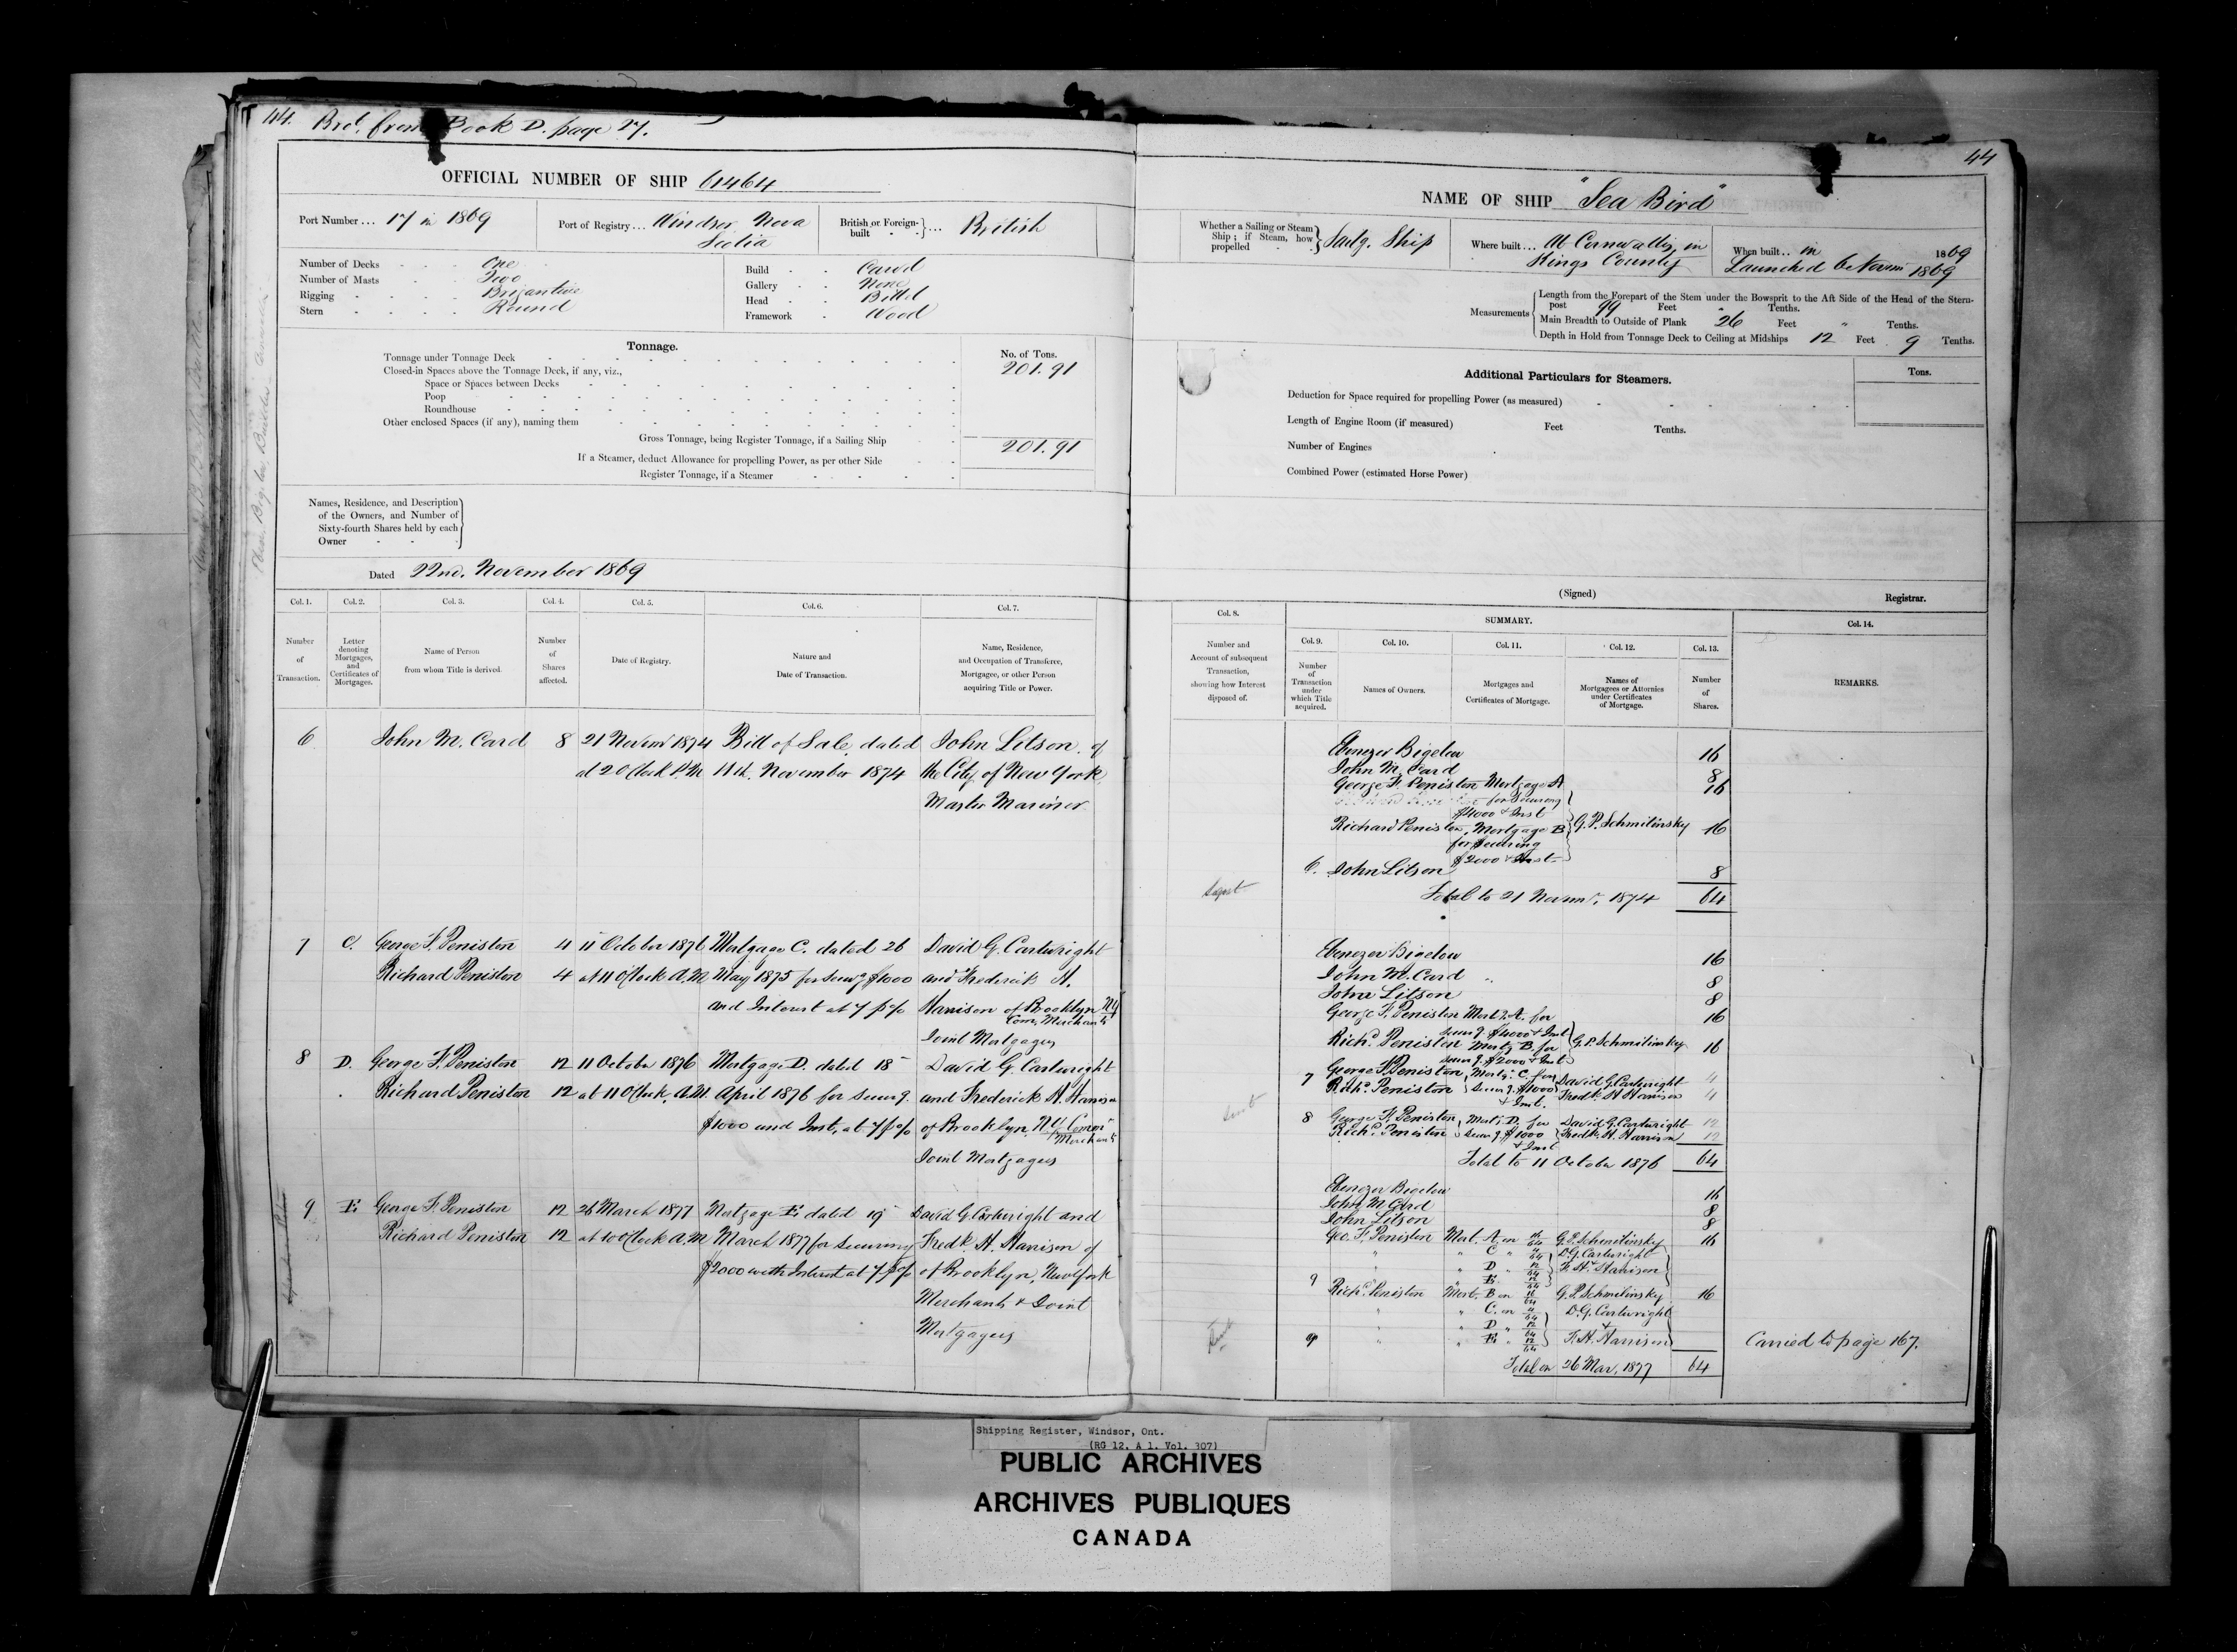 44. Brot. from Book D. page 27.
OFFICIAL NUMBER OF SHIP 61464
Port Number... 17 in 1869
Port of Registry... Windsor Nova
Scotia
British or Foreign-
built } ... British
Number of Decks - - - One
Number of Masts - - - Two
Rigging - - - - Brigantine
Stern - - - - Round
Build - - Carvel
Gallery - - None
Head - - Billet
Framework - Wood
Tonnage.
No. of Tons.
Tonnage under Tonnage Deck 201.91
Closed-in Spaces above the Tonnage Deck, if any, viz.,
Space or Spaces between Decks
Poop
Roundhouse
Other enclosed Spaces (if any), naming them
Gross Tonnage, being Register Tonnage, if a Sailing Ship 201.91
If a Steamer, deduct Allowance for propelling Power, as per other Side
Register Tonnage, if a Steamer
Names, Residence, and Description
of the Owners, and Number of
Sixty-fourth Shares held by each
Owner
Dated 22nd. November 1869
Col. 1. Col. 2. Col. 3. Col. 4. Col. 5. Col. 6. Col. 7.
Number of Transaction.
Letter denoting Mortgages, and Certificates of Mortgages.
Name of Person from whom Title is derived.
Number of Shares affected.
Date of Registry.
Nature and Date of Transaction.
Name, Residence, and Occupation of Transferee, Mortgagee, or other Person acquiring Title or Power.
6 John M. Card 8 21 Novemr 1874 Bill of Sale dated John Litson of
at 2 O'Clock P.M 11th. November 1874 the City of New York
Master Mariner
7 C. George F. Peniston 4 11 October 1876 Mortgage C. dated 26 David G. Cartwright
Richard Peniston 4 at 11 O'Clock A.M May 1875 for Secur'g $1000 and Frederick H.
and Interest at 7 p% Harrison of Brooklyn N.Y
Com. Merchants
Joint Mortgagees
8 D. George F. Peniston 12 11 October 1876 Mortgage D. dated 18 David G. Cartwright
Richard Peniston 12 at 11 O'Clock, A.M. April 1876 for Secur'g. and Frederick H. Harrison
$1000 and Inst. at 7 p% of Brooklyn, N.Y. Comn
Merchants
Joint Mortgagees
9 E George F. Peniston 12 26 March 1877 Mortgage E dated 19 David G. Cartwright and
Richard Peniston 12 at 10 O'Clock A.M March 1877 for Securing Fredk. H. Harrison of
$2000 with Interest at 7 p% of Brooklyn, New York
Merchants & Joint
Mortgagees
44
NAME OF SHIP "Sea Bird"
Whether a Sailing or Steam
Ship; if Steam, how
propelled } Sailg. Ship
Where built... At Cornwallis, in
Kings County
When built.. in 1869
Launched 6 Novem 1869
Measurements
Length from the Forepart of the Stem under the Bowsprit to the Aft Side of the Head of the Stern-
post 99 Feet " Tenths.
Main Breadth to Outside of Plank 26 Feet " Tenths.
Depth in Hold from Tonnage Deck to Ceiling at Midships 12 Feet 9 Tenths.
Additional Particulars for Steamers.
Tons.
Deduction for Space required for propelling Power (as measured)
Length of Engine Room (if measured) Feet Tenths.
Number of Engines
Combined Power (estimated Horse Power)
(Signed) Registrar.
Col. 8. SUMMARY. Col. 14.
Col. 9. Col. 10. Col. 11. Col. 12. Col. 13.
Number and Account of subsequent Transaction, showing how Interest disposed of.
Number of Transaction under which Title acquired.
Names of Owners.
Mortgages and Certificates of Mortgage.
Names of Mortgagees or Attornies under Certificates of Mortgage.
Number of Shares.
REMARKS.
Ebenezer Bigelow 16
John M. Card 8
George F. Peniston Mortgage A 16
for Securing
$4000 & Inst
Richard Peniston, Mortgage B G. P. Schmilinsky 16
for Securing
$2000 & Inst
6. John Litson 8
Total to 21 Novemr, 1874 64
Ebenezer Bigelow 16
John M. Card 8
John Litson 8
George F. Peniston Mort. A. for 16
Secur'g. $4000 & Inst
Richd. Peniston Mortg B. for G. P. Schmilinsky 16
Secur'g. $2000 & Inst
7 George F. Peniston, Mortg. C. for David G. Cartwright 4
Richd. Peniston Secur'g. $1000 Fredk. H Harrison 4
& Inst.
8 George F. Peniston, Mort. D. for David G. Cartwright 12
Richd. Peniston Secur'g. $1000 Fredk. H. Harrison 12
& Inst
Total to 11 October 1876 64
Ebenezer Bigelow 16
John M Card 8
John Litson 8
Geo. F. Peniston Mort. A on 16/64 G. P. Schmilinsky 16
" " C " 4/64 D. G. Cartwright
" " D " 12/64 F. H. Harrison
9 " " E " 12/64
Richd. Peniston Mort. B on 16/64 G. P. Schmilinsky 16
" " C. on 4/64 D. G. Cartwright
" " D " 12/64 &
9 " " E " 12/64 F. H. Harrison
Carried to page 167.
Total on 26 Mar, 1877 64
Shipping Register, Windsor, Ont.
(RG 12, A 1, Vol. 307)
PUBLIC ARCHIVES
ARCHIVES PUBLIQUES
CANADA